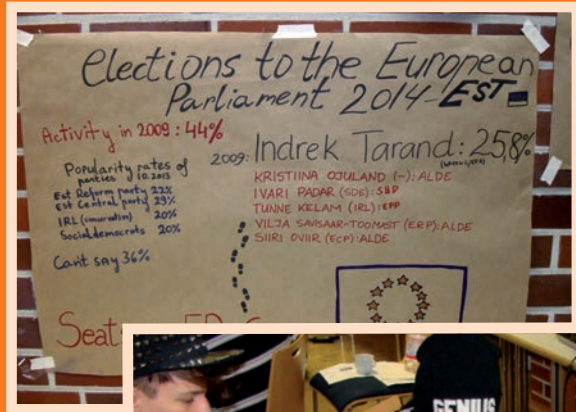 Elections to the European
Parliament 2014-EST
Activity in 2009: 44%
Popularity rates of
parties 10.2013
Est Reform party 22%
Est Central party 29%
IRL (conservatives) 20%
Socialdemocrats 20%
Can't say 36%
2009: Indrek Tarand: 25,8%
KRISTIINA OJULAND (-): ALDE
IVARI PADAR (SDE): S&D
TUNNE KELAM (IRL): EPP
VILJA SAVISAAR-TOOMAST (ERP): ALDE
SIIRI OVIIR (ECP): ALDE
Seats
GENIUS